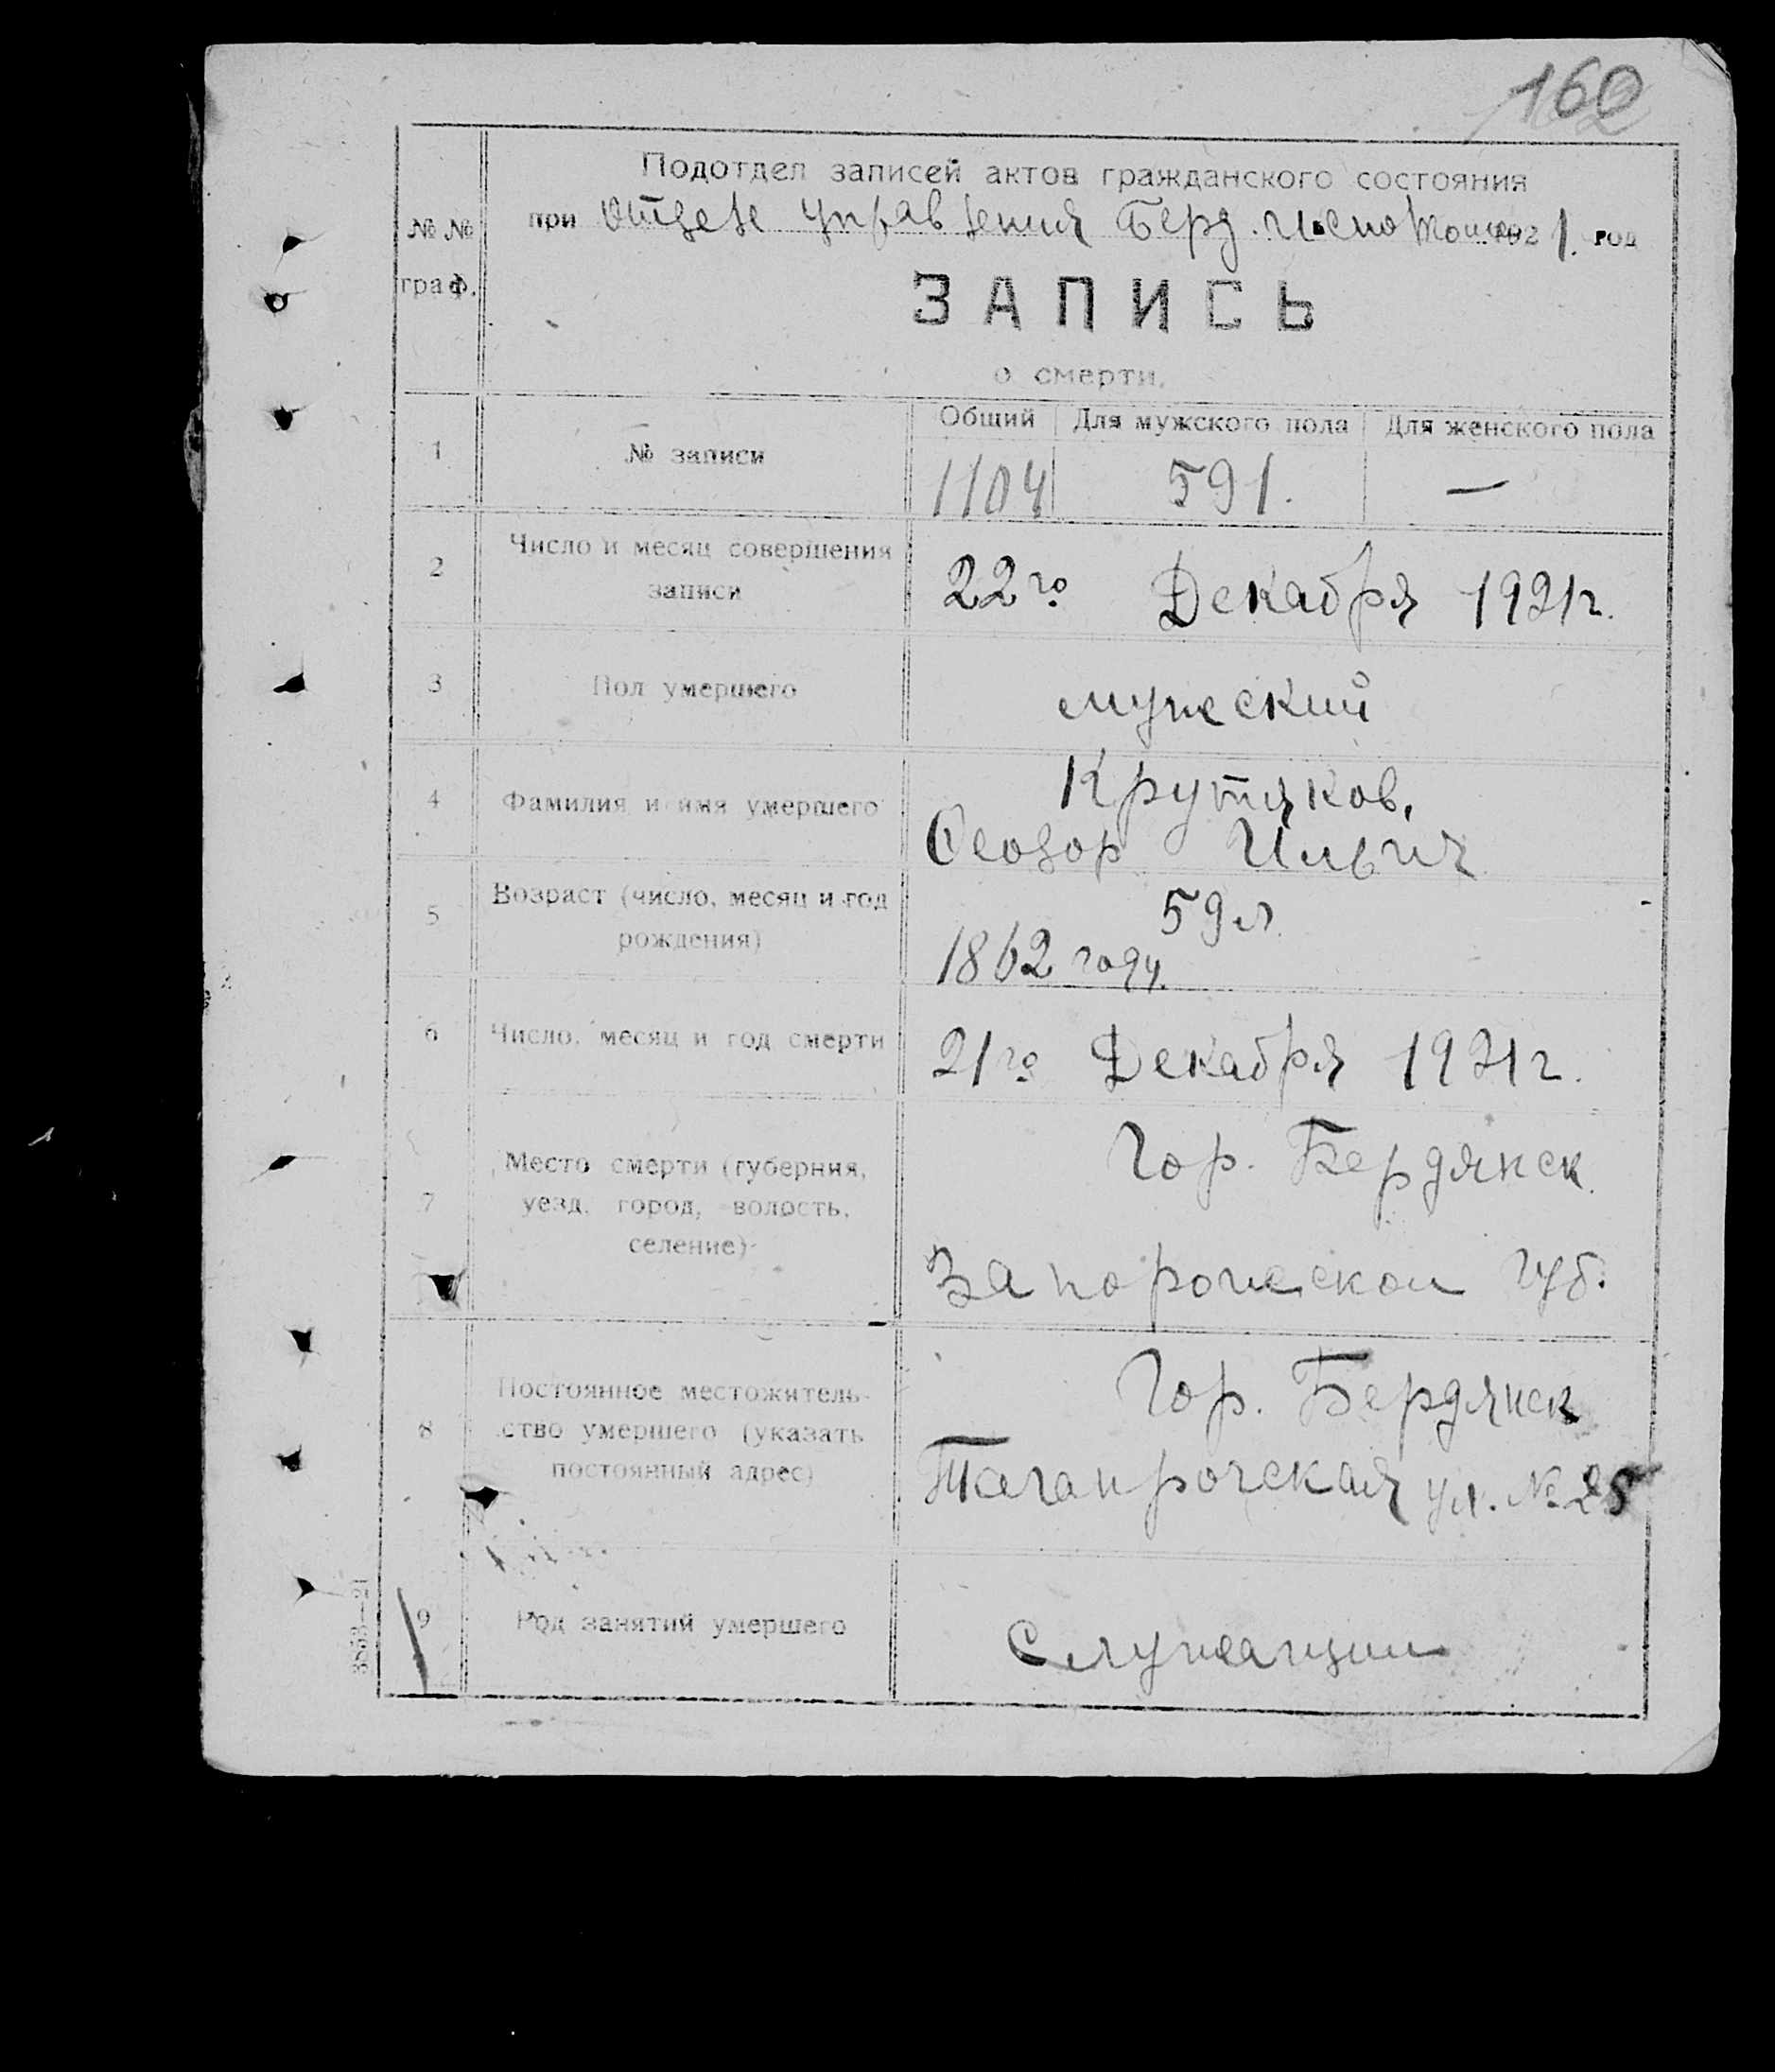 160
Подотдел записей актов гражданского состояния
при Отделе Управления Берд. Исполкома 1921. год
№ № граф.
ЗАПИСЬ
о смерти.
Общий Для мужского пола Для женского пола
1 № записи 1104 591. —
2 Число и месяц совершения записи 22го Декабря 1921г.
3 Пол умершего мужеский
4 Фамилия и имя умершего Крутяков,
Феодор Ильич
5 Возраст (число, месяц и год рождения) 59 л.
1862 году.
6 Число, месяц и год смерти 21го Декабря 1921г.
7 Место смерти (губерния, уезд, город, волость, селение) Гор. Бердянск.
Запорожской Губ.
8 Постоянное местожитель-
ство умершего (указать
постоянный адрес)
Гор. Бердянск
Таганрогская ул. № 25
9 Род занятий умершего Служащий
3553—21